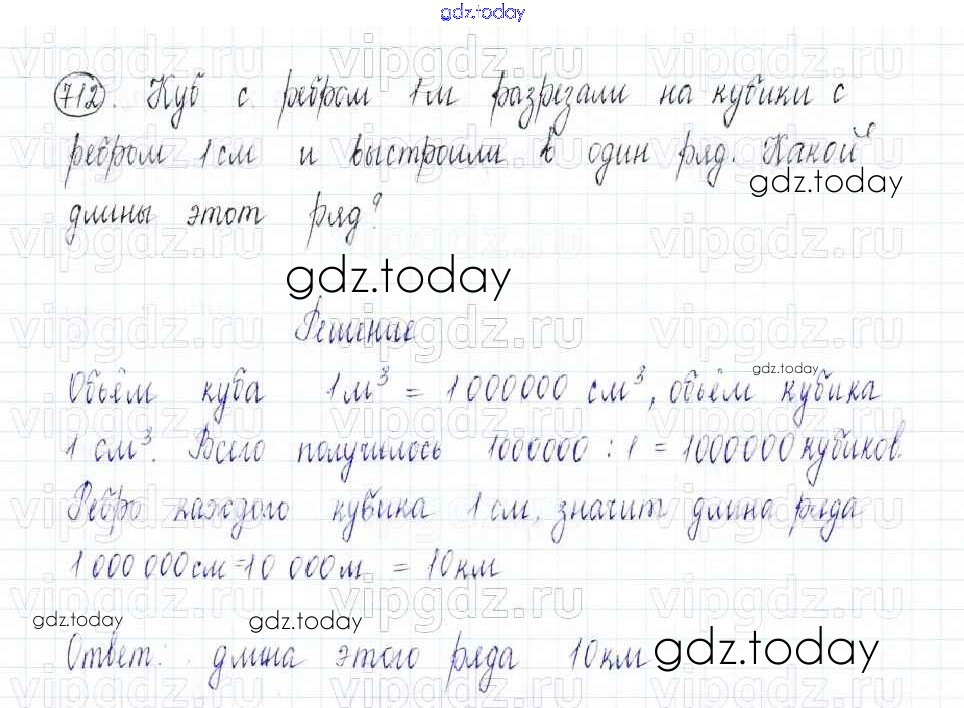 gdz.today
712. Куб с ребром 1м разрезали на кубики с
ребром 1 см и выстроили в один ряд. Какой
gdz.today
длины этот ряд?
gdz.today
Решение
gdz.today
Объём куба 1м³ = 1000000 см³, объём кубика
1 см³. Всего получилось 1000000 : 1 = 1000000 кубиков.
Ребро каждого кубика 1 см, значит длина ряда
1 000 000см = 10 000м = 10км
gdz.today
gdz.today
Ответ: длина этого ряда 10км
gdz.today
vipgdz.ru vipgdz.ru vipgdz.ru